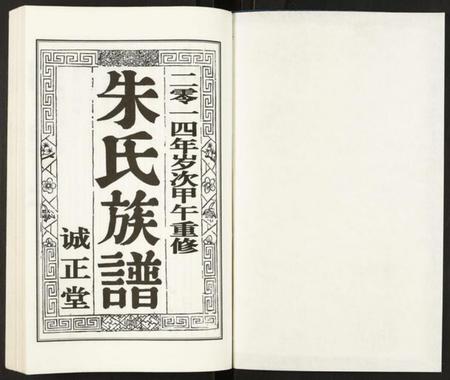 二零一四年岁次甲午重修
朱氏族譜
诚正堂